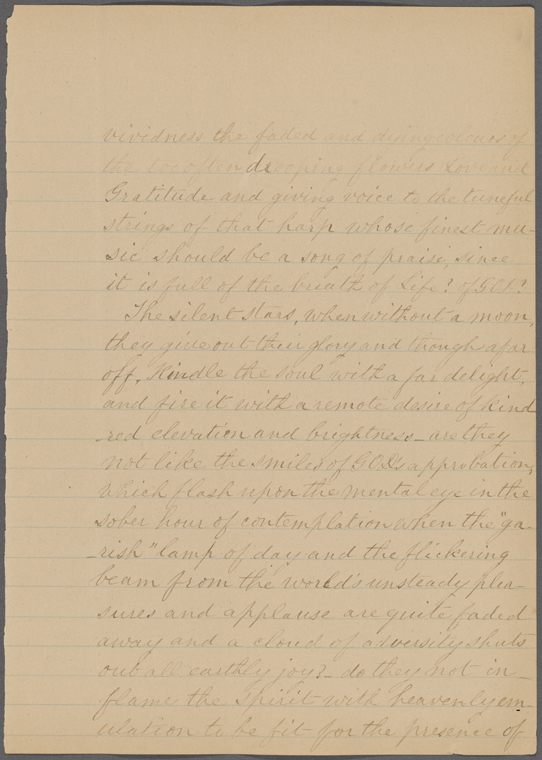 vividness the faded and dining colours of
the too often drooping flowers Love and
Gratitude and giving voice to the tuneful
strings of that harp whose finest mu-
sic should be a song of praise, since
it is full of the breath of Life? of GOD?
The silent stars, when without a moon,
they give out their glory and though afar
off, Kindle the soul with a far delight,
and fire it with a remote desire of kind
-red elevation and brightness - are they
not like the smiles of GOD's approbation,
which flash upon the mental eye in the
sober hour of contemplation when the "ga-
-rish" lamp of day and the flickering
beam from the world's unsteady plea-
sures and applause are quite faded
away and a cloud of adversity shuts
out all earthly joy? - do they not in-
flame the Spirit with heavenly em-
ulation to be fit for the presence of